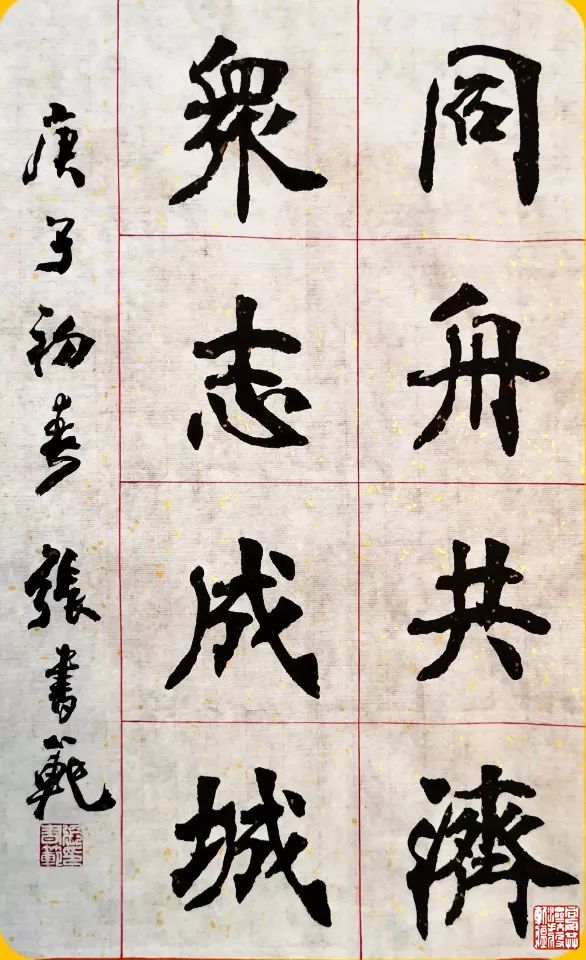 同舟共濟
眾志成城
庚子初春張書範
張書範